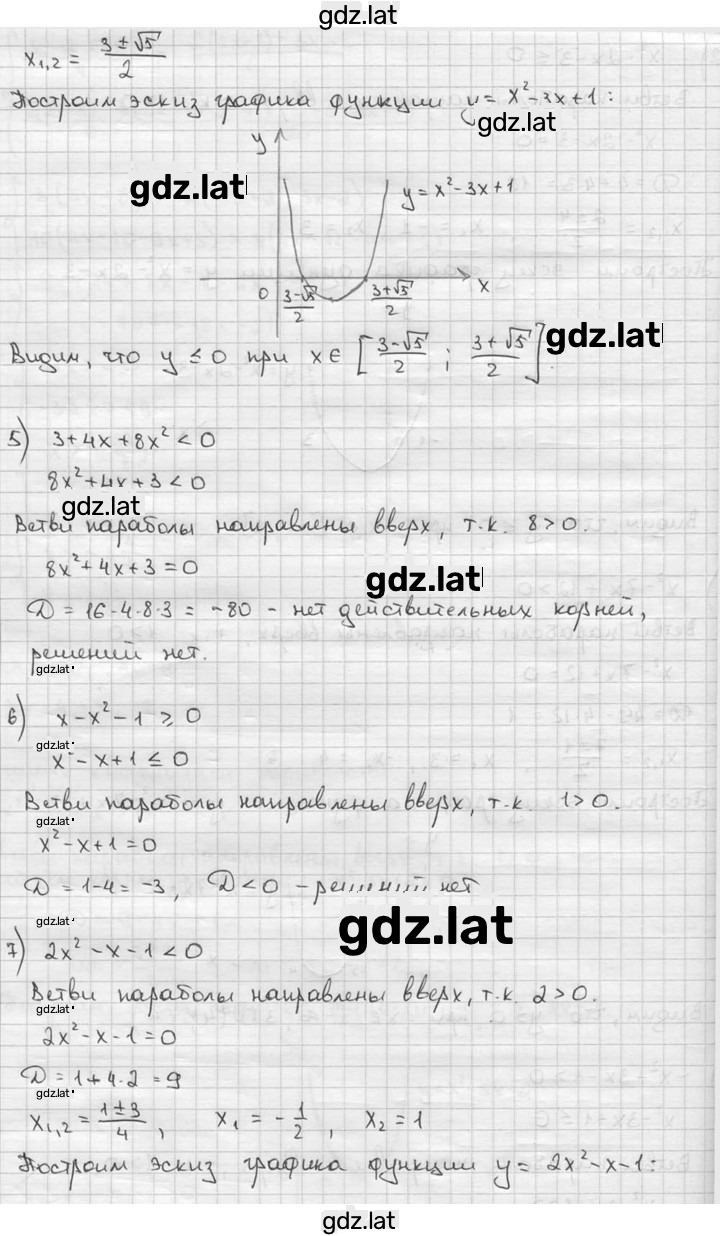 gdz.lat
x₁,₂ = (3 ± √5)/2
Построим эскиз графика функции y = x² - 3x + 1 :
gdz.lat
y
gdz.lat
y = x² - 3x + 1
0 (3 - √5)/2 (3 + √5)/2 x
Видим, что y ≤ 0 при x ∈ [(3 - √5)/2 ; (3 + √5)/2].
gdz.lat
5) 3 + 4x + 8x² < 0
8x² + 4x + 3 < 0
gdz.lat
Ветви параболы направлены вверх, т.к. 8 > 0.
8x² + 4x + 3 = 0
gdz.lat
D = 16 - 4·8·3 = -80 - нет действительных корней,
решений нет.
gdz.lat
6) x - x² - 1 ≥ 0
gdz.lat
x² - x + 1 ≤ 0
Ветви параболы направлены вверх, т.к 1 > 0.
gdz.lat
x² - x + 1 = 0
D = 1 - 4 = -3, D < 0 - решений нет
gdz.lat
gdz.lat
7) 2x² - x - 1 < 0
Ветви параболы направлены вверх, т.к. 2 > 0.
2x² - x - 1 = 0
D = 1 + 4·2 = 9
gdz.lat
x₁,₂ = (1 ± 3)/4 , x₁ = -1/2 , x₂ = 1
Построим эскиз графика функции y = 2x² - x - 1 :
gdz.lat